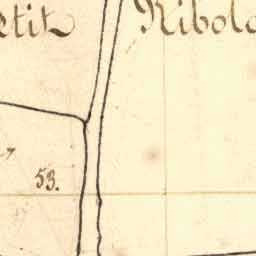 etit Ribol
53.